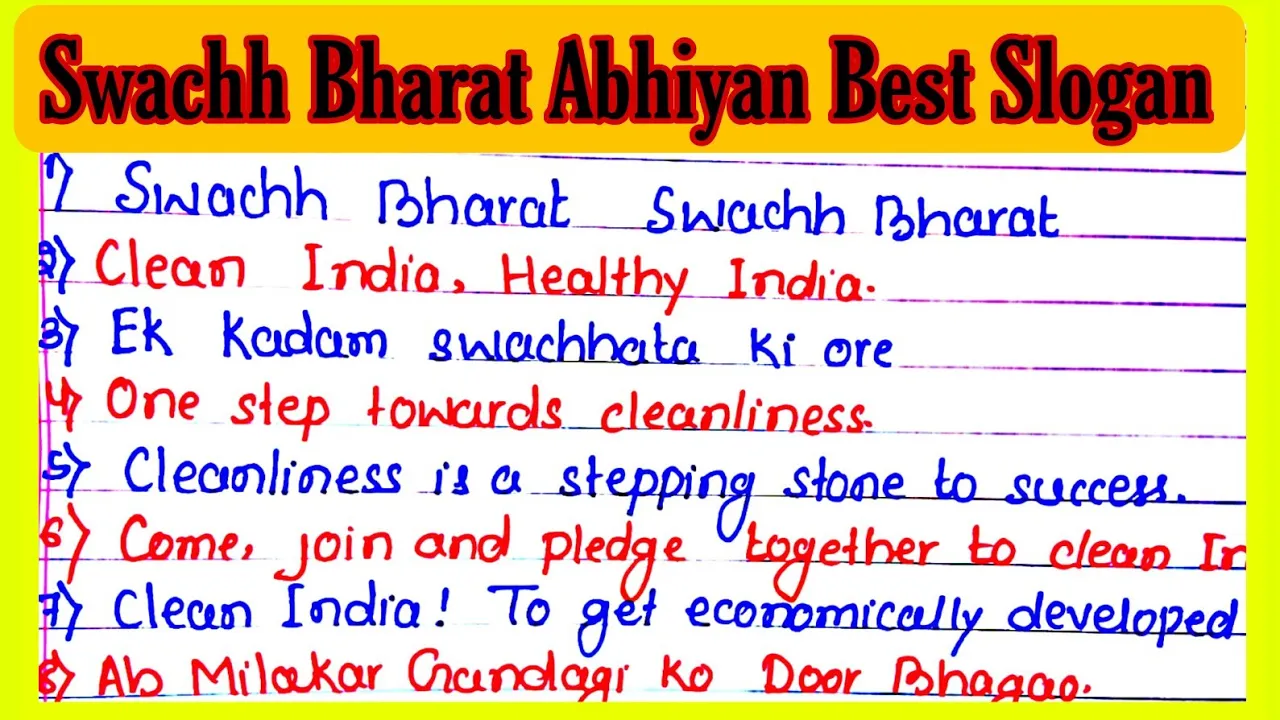 Swachh Bharat Abhiyan Best Slogan
1) Swachh Bharat Swachh Bharat
2) Clean India, Healthy India.
3) Ek Kadam swachhata ki ore
4) One step towards cleanliness.
5) Cleanliness is a stepping stone to success.
6) Come, join and pledge together to clean In
7) Clean India! To get economically developed
8) Ab Milakar Gandagi ko Door Bhagao.